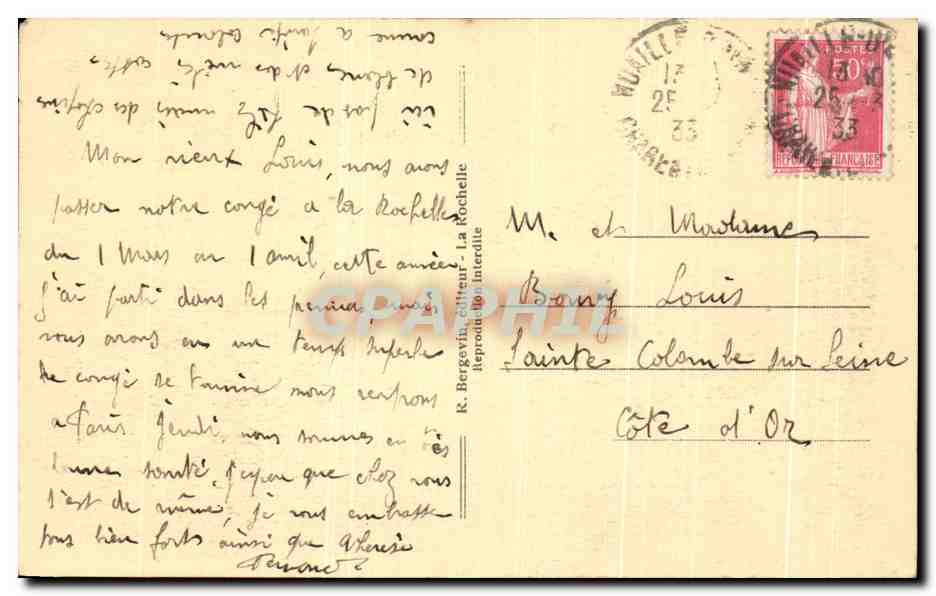 Mon vieux Louis, nous avons
passer notre congé a la Rochelle
du 1 Mars au 1 avril, cette année
j'ai parti dans les premiers, mais
nous avons eu un temps superbe
le congé se termine nous rentrons
a Paris Jeudi, nous sommes en très
bonne santé, j'espère que chez vous
s'est de même, je vous embrasse
tous bien forts ainsi que Therese
vu pas de
de blancs et des
comme a Sainte Colombe
R. Bergevin, éditeur - La Rochelle
Reproduction interdite
CPAPHIL
13
25
33
POSTES
50c
RÉPUBLIQUE FRANÇAISE
13
25 - 3
33
M. et Madame
Louis
Sainte Colombe sur Seine
Côte d'Or